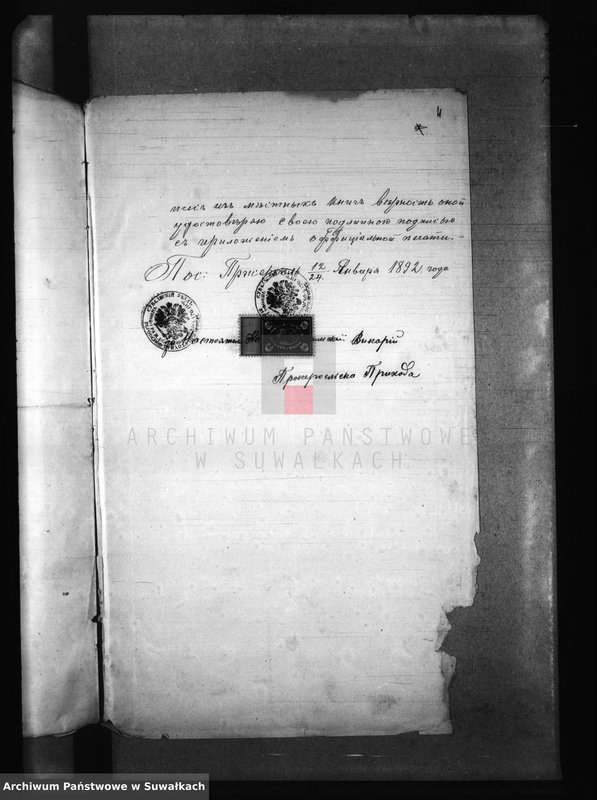 4
пись изъ мѣстныхъ книгъ вѣрность оной
удостовѣряю своею подлинною подписью
съ приложеніемъ оффиціальной печати.-
Пос: Пржеросль 12/24 Января 1892 года
Викарій
Прихода
ARCHIWUM PAŃSTWOWE
W SUWAŁKACH
Archiwum Państwowe w Suwałkach